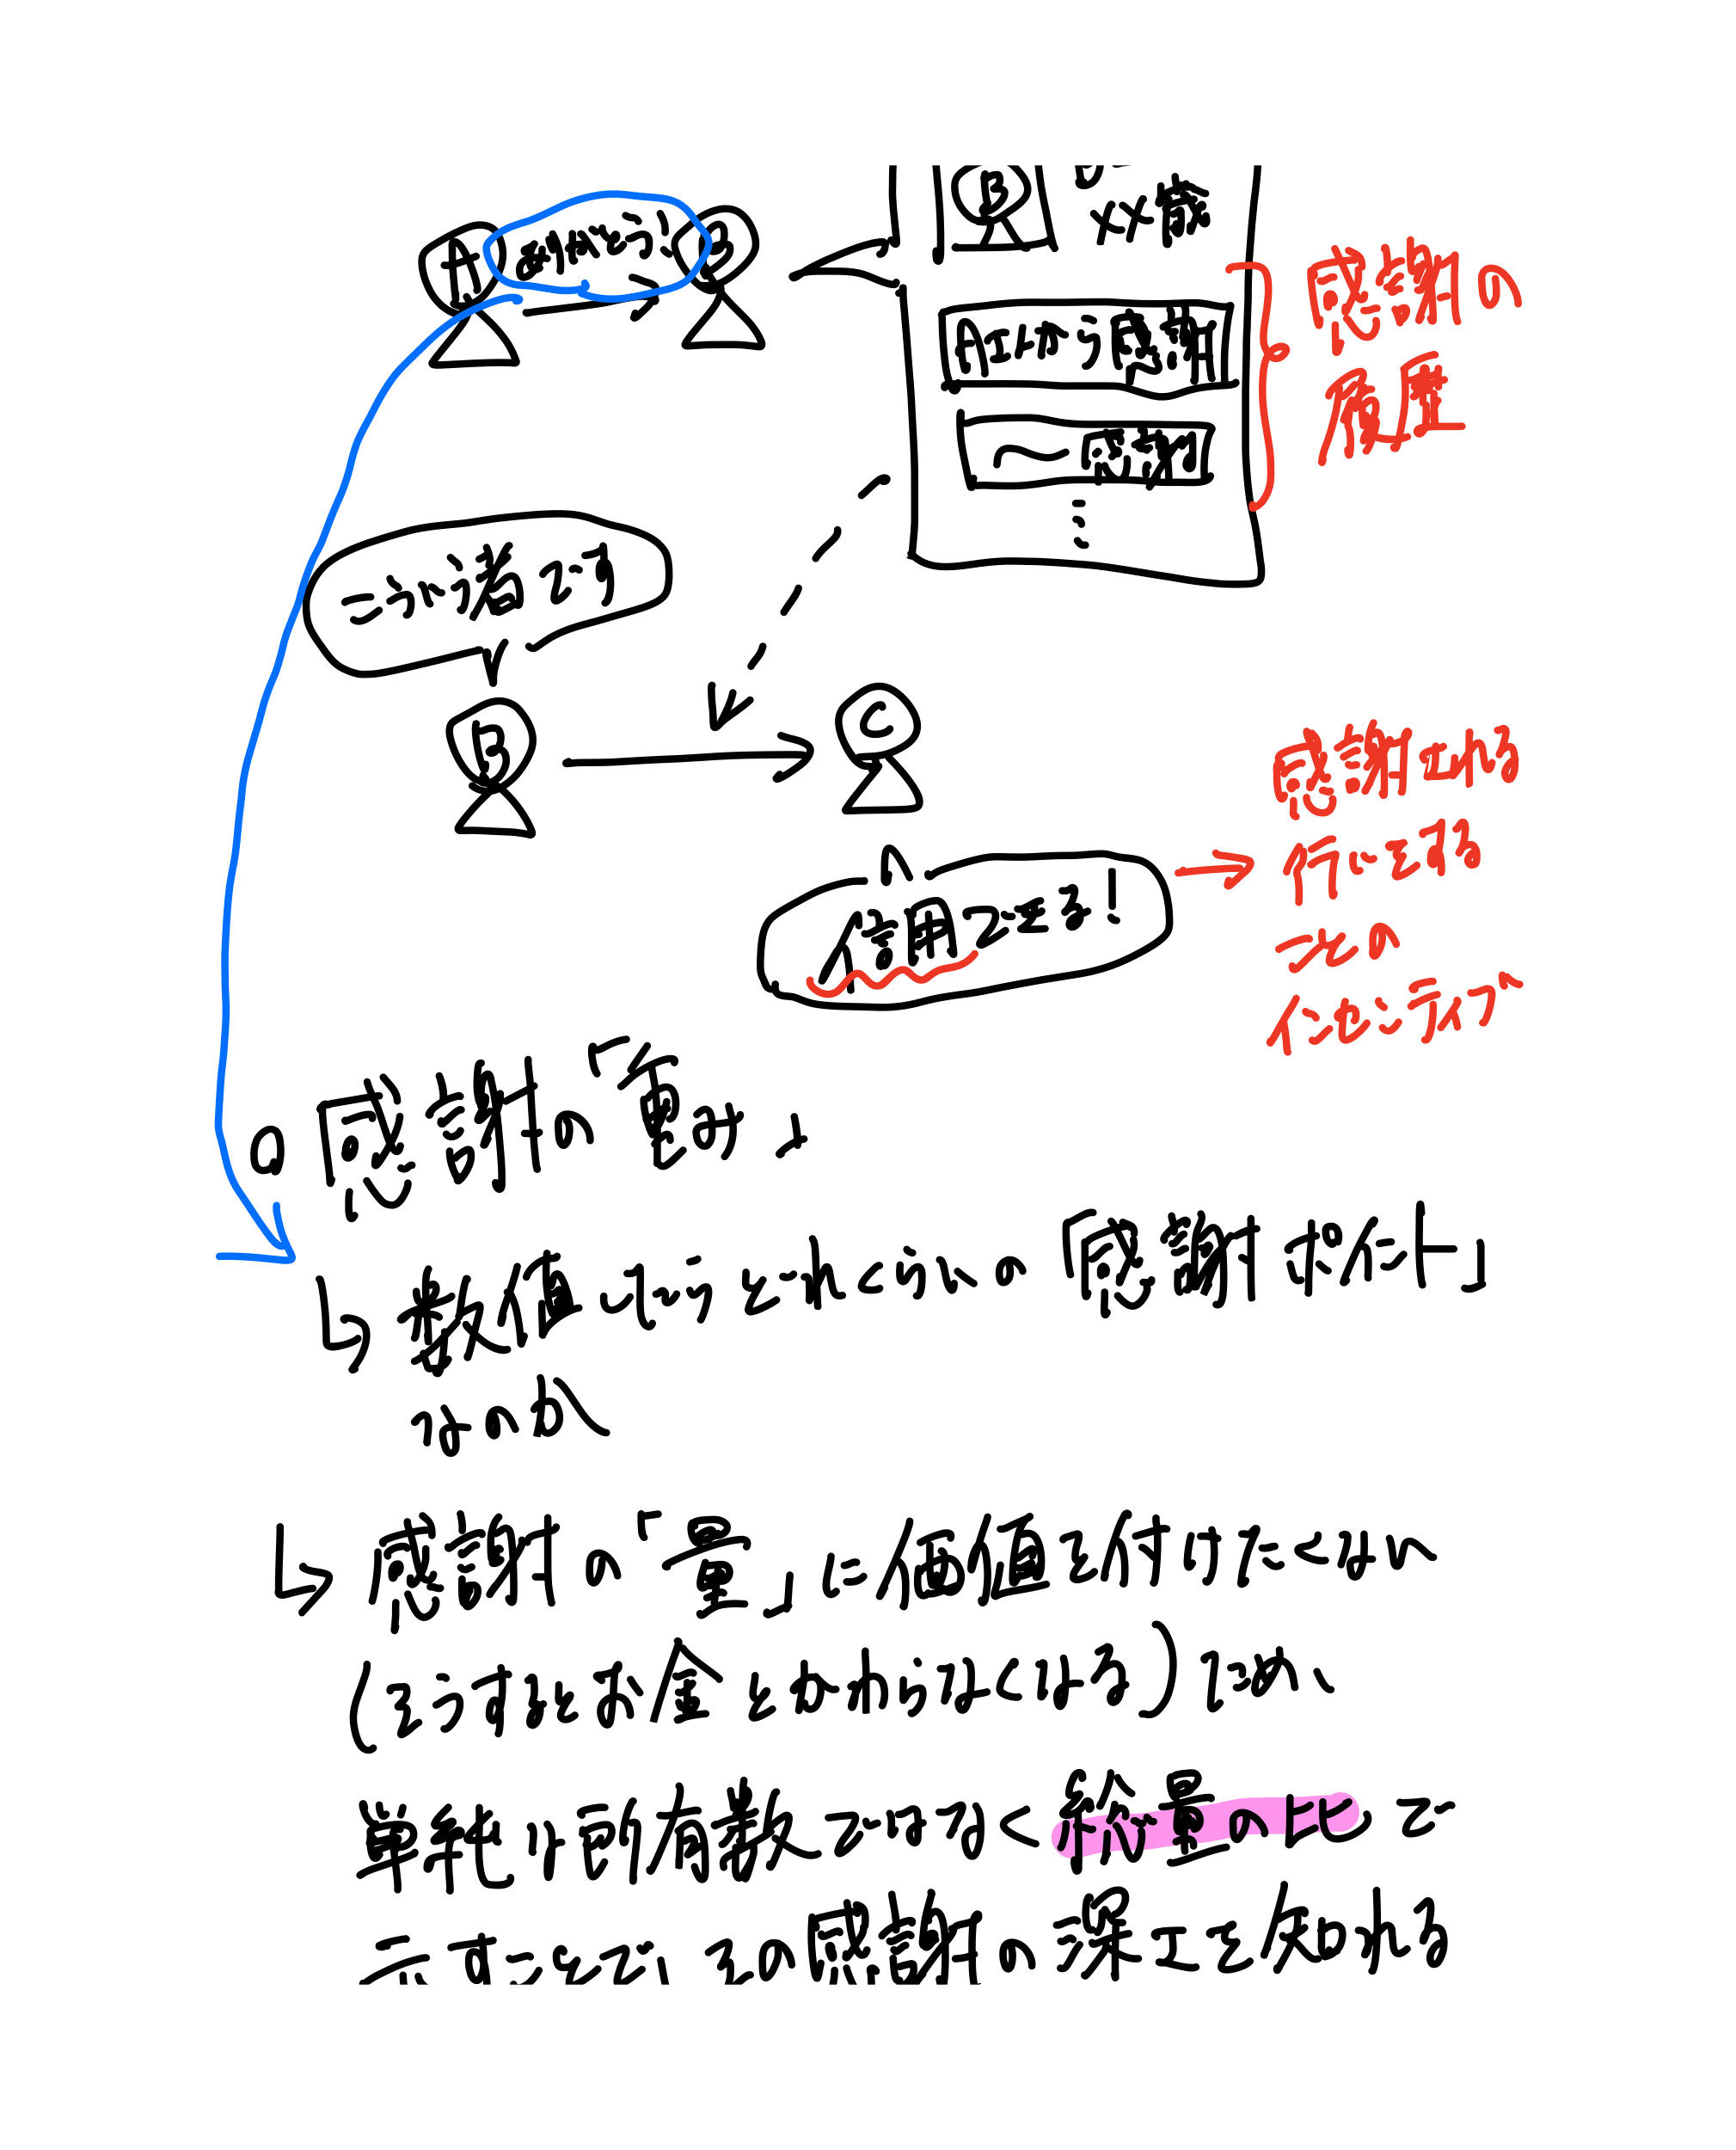 A
ありがとう
B
B
××様
Aさんから感謝
〜感謝
感謝の
履歴
こういう者です
B
C
信用できる!
感謝される
行いをする
ことの
インセンティブ
Q 感謝の「重み」
↳ 数値化?どれくらいの「感謝ポイント」
なのか
↳ 感謝の「量」に価値を付けたくない
(そうするとお金とかわらなくなる)ため、
単純な所有数ではなく総量の比で
その感謝の深さを知れる